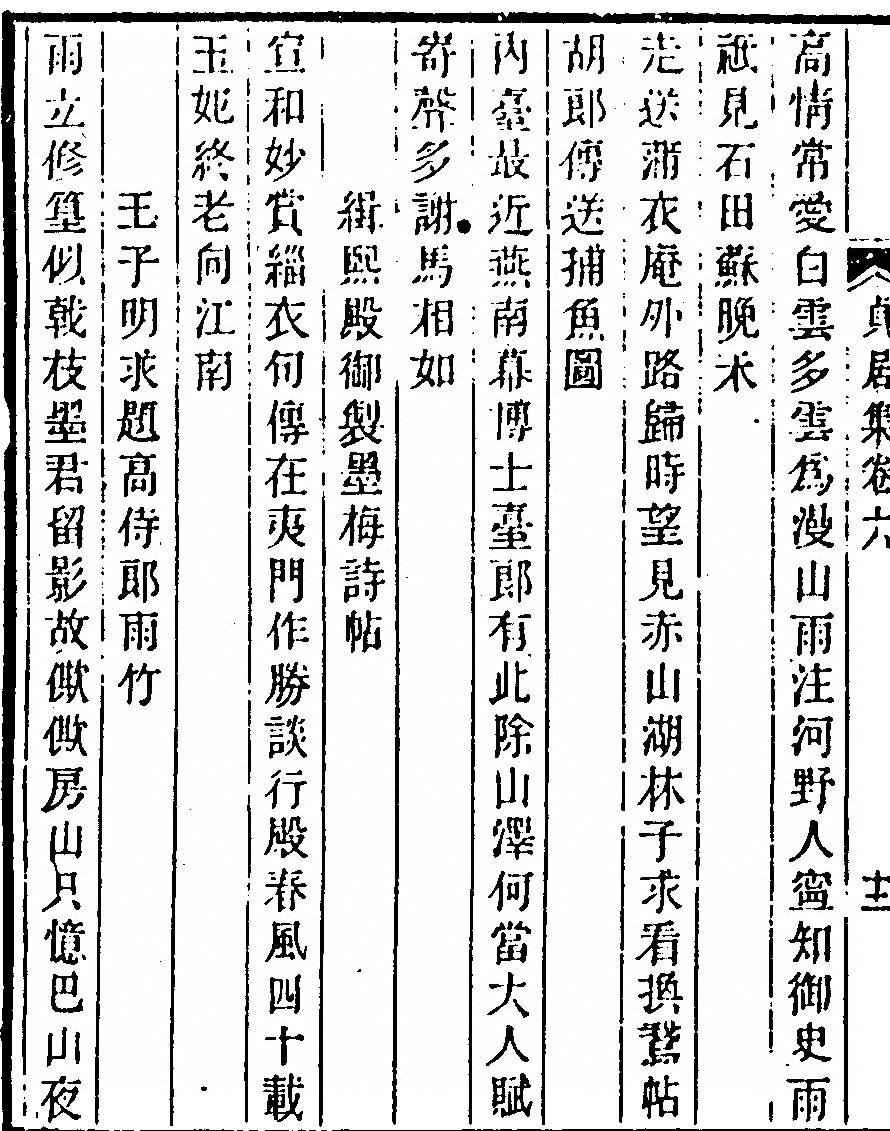 貞居集卷六　　十二
高情常愛白雲多雲爲漫山雨注河野人寧知御史雨
祇見石田蘇晚禾
走送蒲衣庵外路歸時望見赤山湖林子求看換鵞帖
胡郎傳送捕魚圖
內臺最近燕南幕博士臺郎有此除山澤何當大人賦
寄聲多謝馬相如
緝熙殿御製墨梅詩帖
宣和妙賞緇衣句傳在夷門作勝談行殿春風四十載
玉妃終老向江南
王子明求題高侍郎雨竹
雨立修篁似戟枝墨君留影故僛僛房山只憶巴山夜